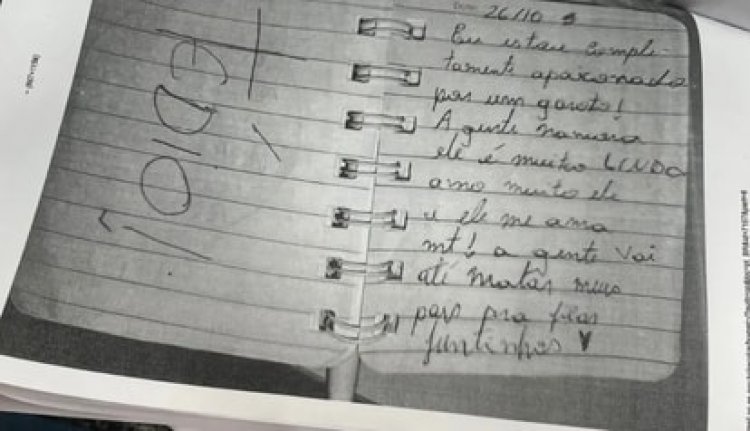 TÉDIO!
26/10
Eu estou comple-
tamente apaixonada
por um garoto!
A gente namora
ele é muito LINDO
amo muito ele
e ele me ama
mt! a gente vai
até matar meus
pais pra ficar
juntinhos ♥